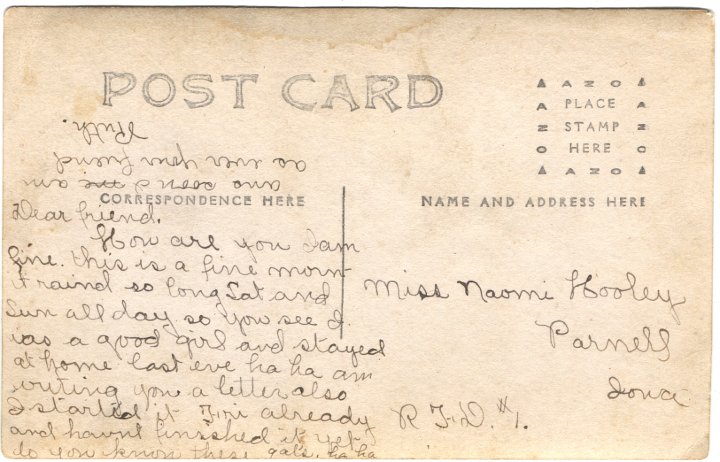 POST CARD
AZO
PLACE
STAMP
HERE
AZO
CORRESPONDENCE HERE
NAME AND ADDRESS HERE
Dear friend.
How are you I am
fine. this is a fine morn
it raind so long Sat and
Sun all day so you see I
was a good girl and stayed
at home last eve ha ha am
writing you a letter also
I started it Fri already
and havnt finished it yet
do you know these gals. ha ha
ans soon
as ever your friend
Ruth
Miss Naomi Hooley
Parnell
Iowa
R.F.D. #1.